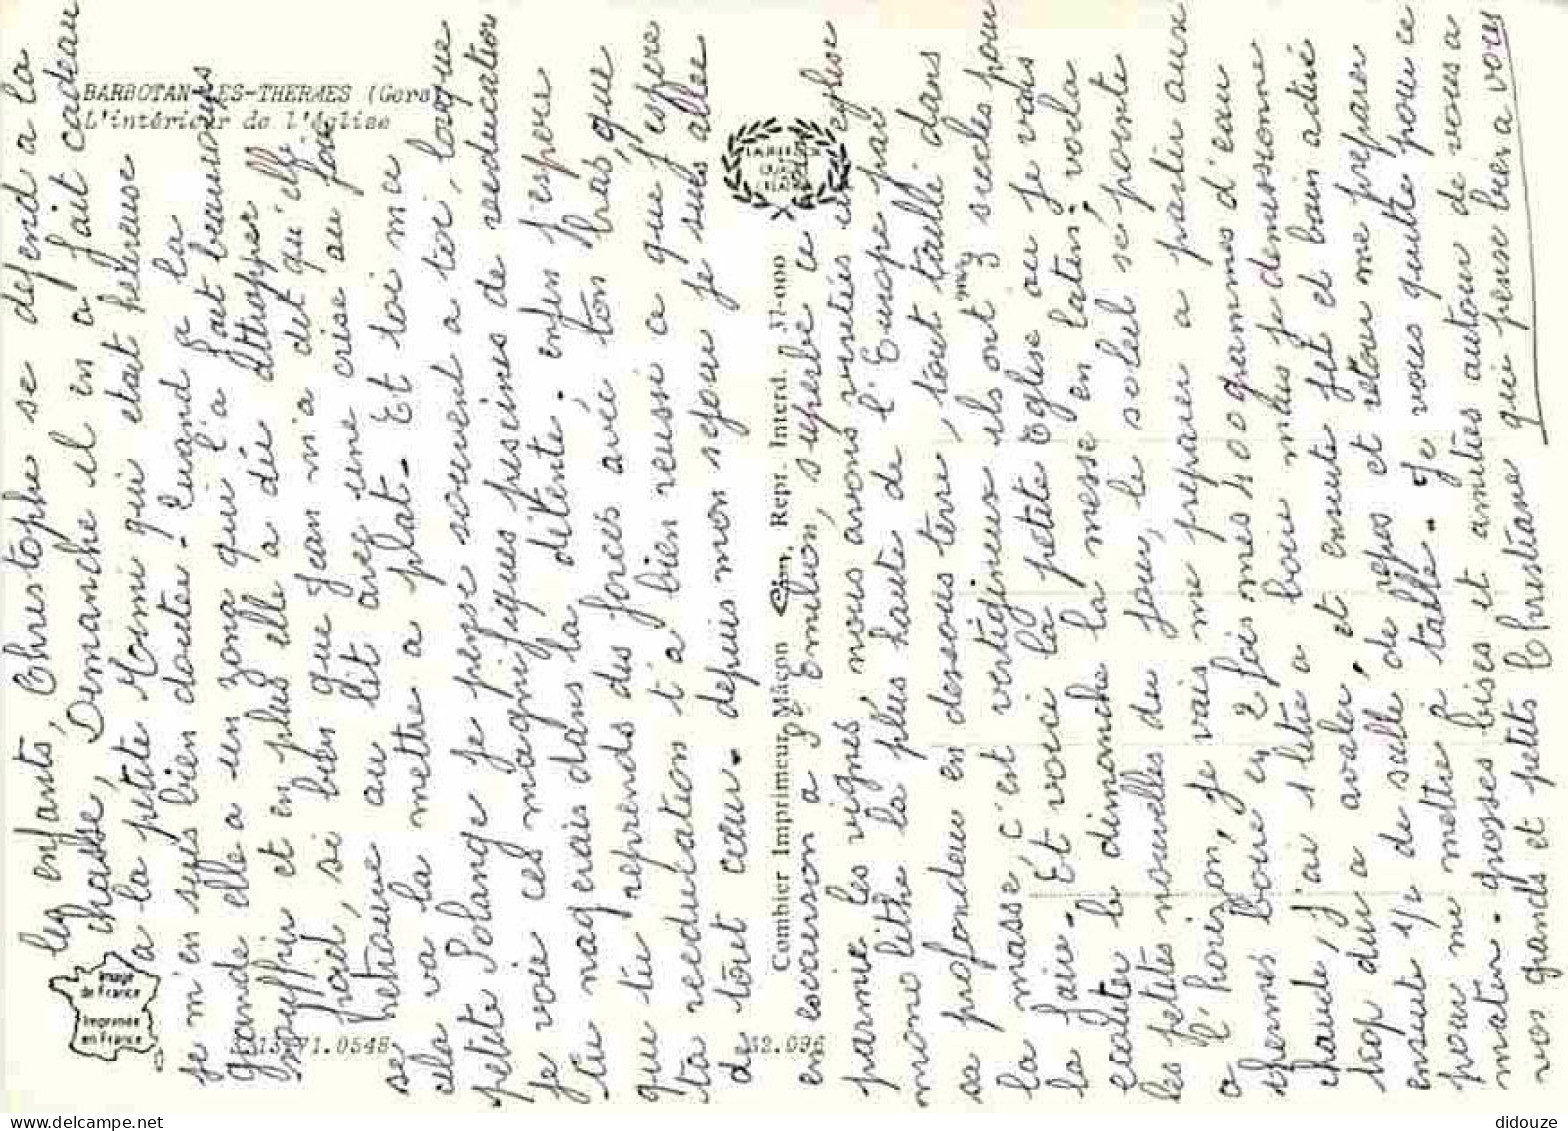 BARBOTAN-LES-THERMES (Gers)
L'intérieur de l'église
les enfants, Christophe se defend a la
chasse, Dimanche il en a fait cadeau
a la petite Mimi qui etait heureuse
je m'en suis bien doutée - Quand a la
grande elle a un zona qui l'a fait beaucoup
souffrir et en plus elle a dû attrapper
froid, si bien que Jean m'a dit qu'elle
se retrouve au lit avec une crise au foie
cela va la mettre a plat - Et toi ma
petite Solange je pense souvent a toi, lorque
je vois ces magnifiques piscines de reeducation
tu nagerais dans la détente - enfin j'espère
que tu reprends des forces avec ton bras, que
ta reeducation t'a bien reussi a que j'espere
de tout cœur - depuis mon sejour je suis allee
Combier Imprimeur Mâcon Cim, Repr. Interd. 37-000
en escursion a St Emilion, superbe
parmie les vignes, nous avons visitée église
mono lithe la plus haute de l'Europe j'ai
sa profondeur en dessous terre, tout taillé dans
la masse, c'est vertigineux ils ont mis 3 siecles pour
la faire - Et voici la petite Eglise ou je vais
ecouter le dimanche la messe en latin; voila
les petites nouvelles du jour, le soleil se pointe
a l'horizon, je vais me preparer a partir aux
thermes boire en 2 fois mes 400 grammes d'eau
chaude, j'ai 1 litre a boire mais je demissionne
trop dur a avaler, et ensuite jet et bain aéré
ensuit 1/2 de salle de repos et retour me preparer
pour me mettre a table - Je vous quitte pour ce
matin - grosses bises et amitiés autour de vous a
vos grands et petits Christiane qui pense bien a vous
IMAGE
de France
Imprimée
en France
1371.0548
32.096